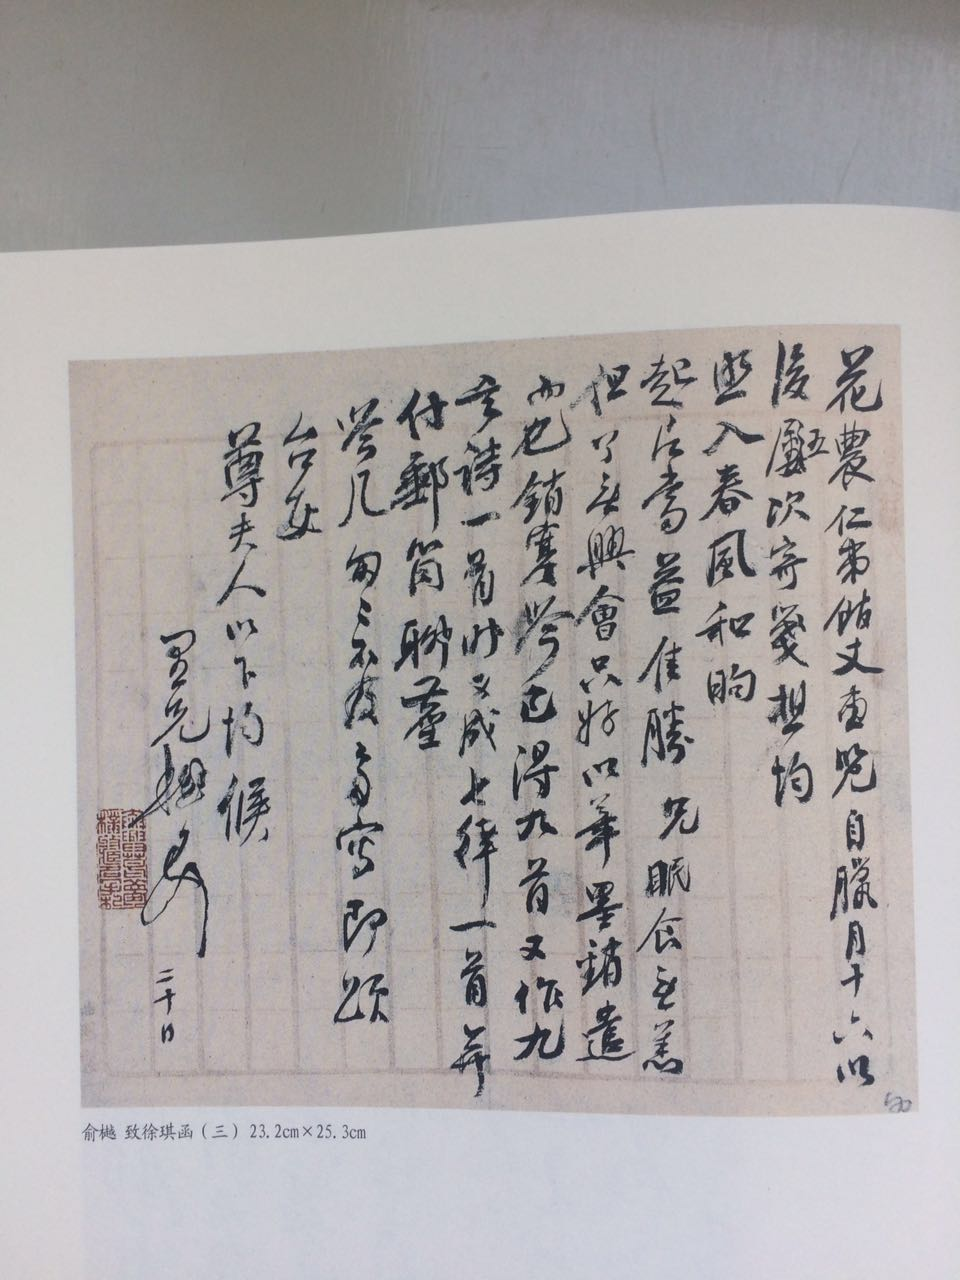 花農仁弟館丈惠覽自臘月十六以
後五次寄箋想均
照入春風和煦
起居當益佳勝兄眠食無恙
但了無興會只好以筆墨銷遣
而也銷寒吟已得九首又作九
言詩一首昨又成七律一首并
付郵筒聊塵
吟几匆匆不及多寫即頌
台安
尊夫人以下均候
愚兄樾頓
二十日
俞樾 致徐琪函（三）23.2cm×25.3cm